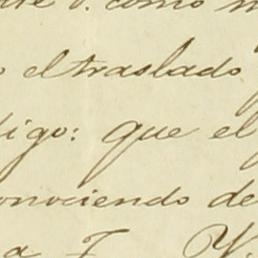 como
el traslado
digo: que el
conociendo de
a F. Y.